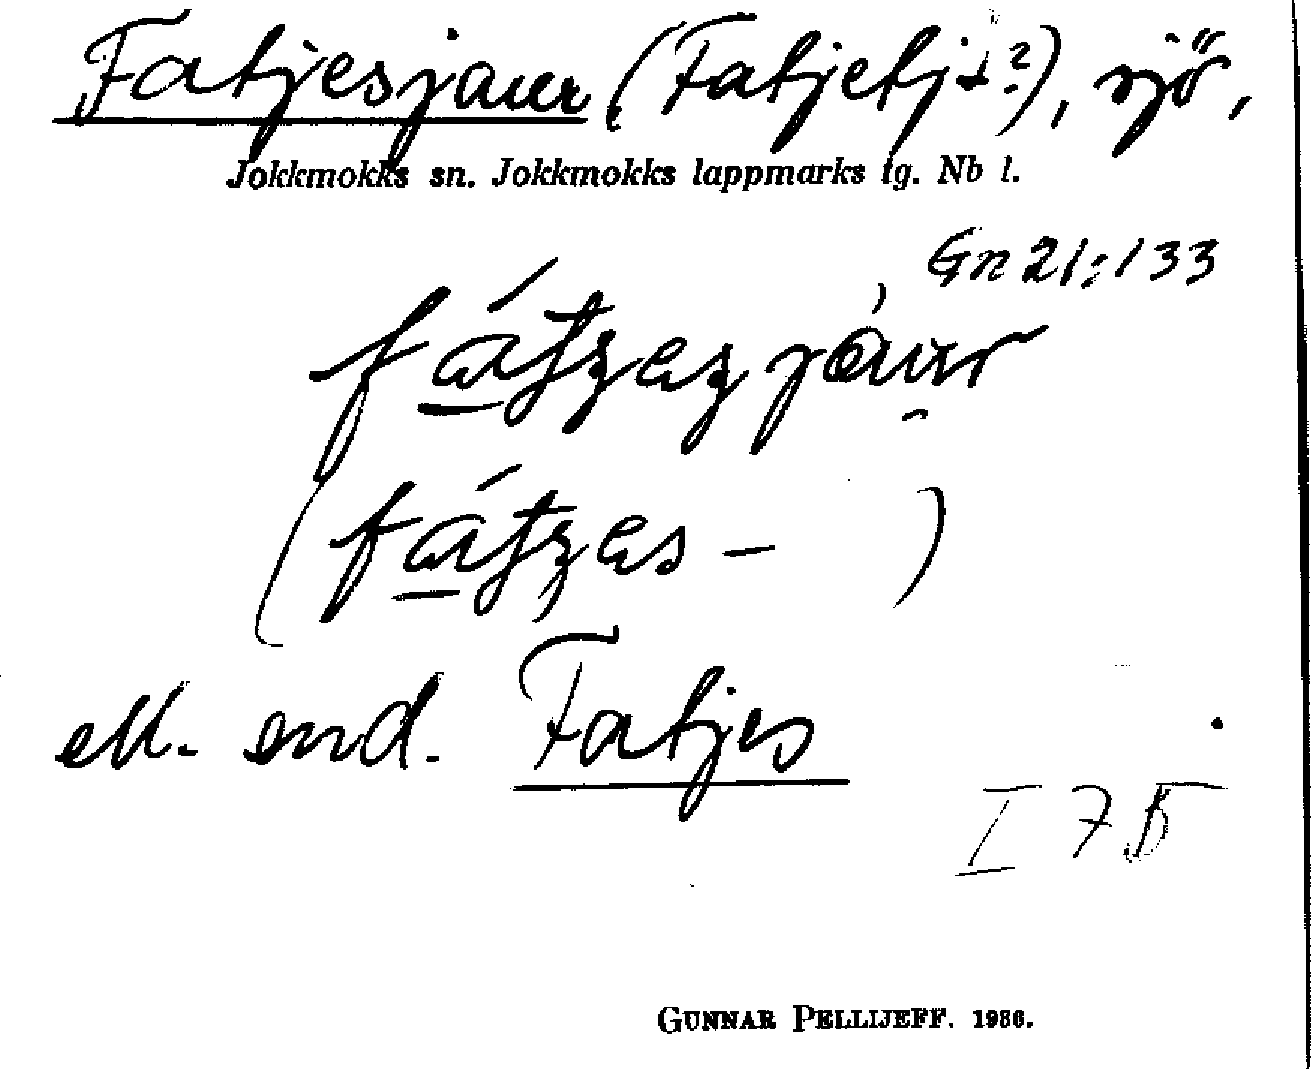 Fatjesjaur (Fatjetj+?), sjö,
Jokkmokks sn. Jokkmokks lappmarks tg. Nb l.
Gn 21:133
ell. end. Fatjes
I 7 b
GUNNAR PELLIJEFF. 1936.